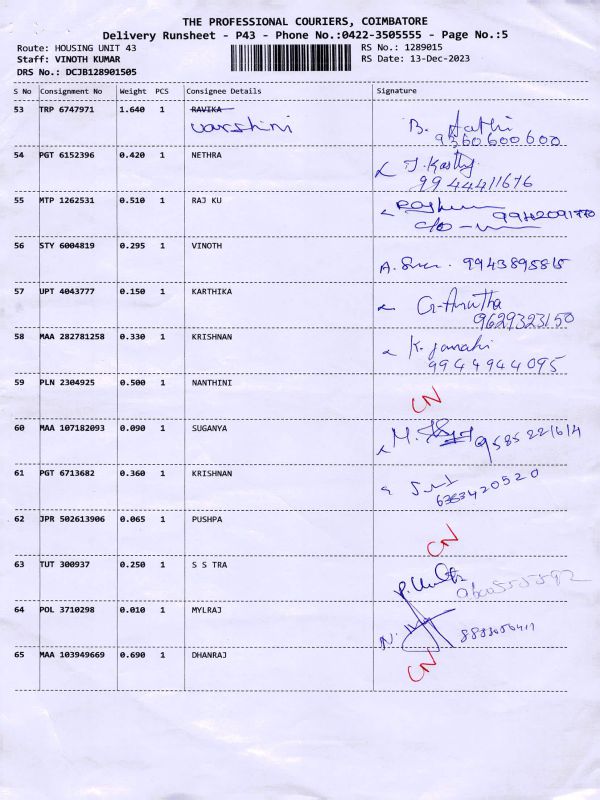 THE PROFESSIONAL COURIERS, COIMBATORE
Delivery Runsheet - P43 - Phone No.:0422-3505555 - Page No.:5
Route: HOUSING UNIT 43 RS No.: 1289015
Staff: VINOTH KUMAR RS Date: 13-Dec-2023
DRS No.: DCJB128901505
S No Consignment No Weight PCS Consignee Details Signature
53 TRP 6747971 1.640 1 RAVIKA
varshini B. 9360600600
54 PGT 6152396 0.420 1 NETHRA
9944411676
55 MTP 1262531 0.510 1 RAJ KU
c/o
56 STY 6004819 0.295 1 VINOTH
A. 9943895815
57 UPT 4043777 0.150 1 KARTHIKA
9629323150
58 MAA 282781258 0.330 1 KRISHNAN
K. Janaki
9944944095
59 PLN 2304925 0.500 1 NANTHINI CN
60 MAA 107182093 0.090 1 SUGANYA
M. 9585221614
61 PGT 6713682 0.360 1 KRISHNAN
6383420520
62 JPR 502613906 0.065 1 PUSHPA CN
63 TUT 300937 0.250 1 S S TRA
P.
64 POL 3710298 0.010 1 MYLRAJ
N.
65 MAA 103949669 0.690 1 DHANRAJ CN